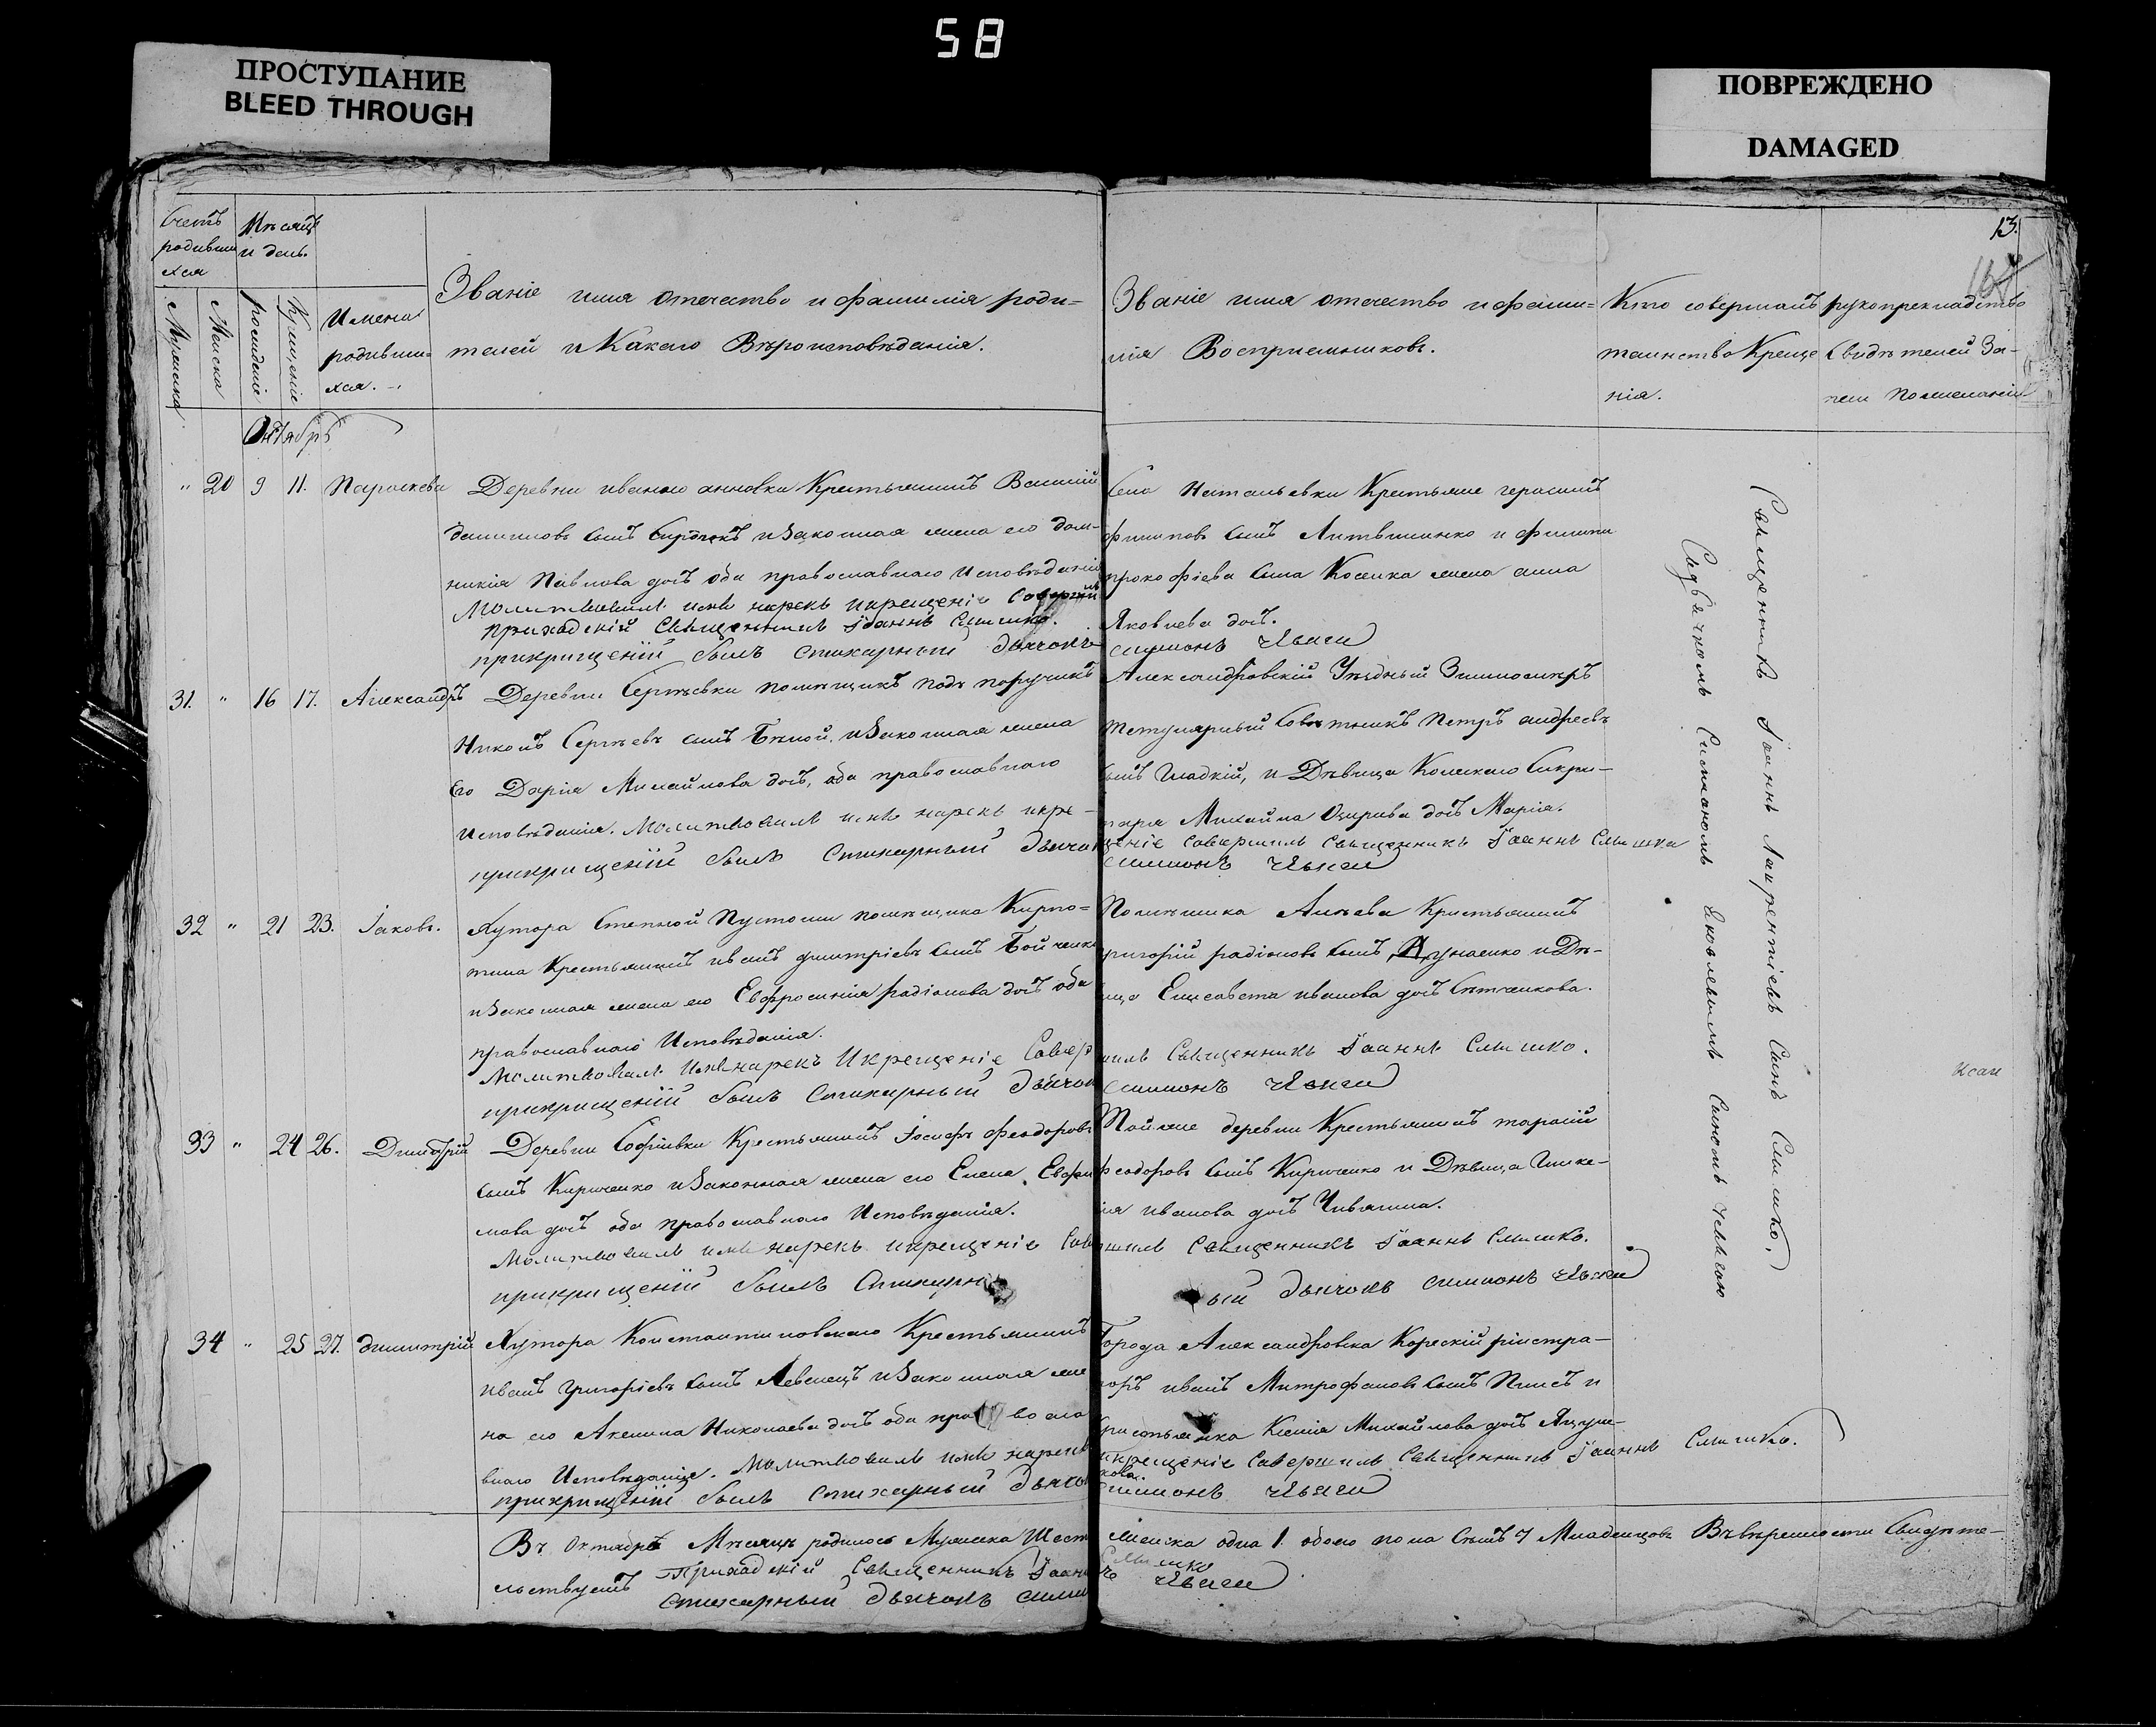 58
ПРОСТУПАНИЕ
BLEED THROUGH
ПОВРЕЖДЕНО
DAMAGED
13.
Счетъ
родивши
хся
Мѣсяцъ
и день.
Мужеска
Женска
рожденіе
Крещеніе
Имена
родивши=
хся.
Званіе имя отечество и фамилія роди=
телей и Какого Вѣроисповѣданія.
Званіе имя отечество и фами=
лія Воспріемниковъ.
Кто совершалъ
таинство Креще
нія.
рукоприкладство
Свидѣтелей За-
писи по желанію
Октябрь
" 20 9 11. Параскева
Деревни Крестьянинъ Василій
сынъ и Законная жена его Дом-
никія Павлова дочь оба православнаго Исповѣданія
Молитвовалъ имя нарекъ и крещеніе Соверши
приходскій Священникъ Іоаннъ Слышко.
прикрищеніи былъ Стихарный Дьячокъ
Села Натальевки Крестьяне герасимъ
филиповъ сынъ Литвиненко и филипа
прокофіева сына жена анна
Яковлева дочь.
симионъ
31. " 16 17. Александръ
Деревни Сергѣевки помѣщикъ подъ поручикъ
Никонъ Сергѣевъ сынъ Бѣлой, и Законная жена
Его Дарія Михайлова дочь, оба православнаго
Исповѣданія. Молитвовалъ имя нарекъ и кре-
прикрищеніи былъ Стихарный Дьячок
Александровскій Уѣздный
титулярный Совѣтникъ Петръ андреевъ
сынъ Гладкій, и Дѣвица Секре-
таря Михайла дочь Марія.
щеніе Совершилъ Священникъ Іоаннъ Слышко
симионъ
32 " 21 23. Іаковъ.
Хутора Степной Пустоши помѣщика Кирпо=
тина Крестьянинъ иванъ димитріевъ сынъ Бойченко
и Законная жена его Евфросинія радіонова дочь оба
православнаго Исповѣданія.
Молитвовалъ имя нарекъ И крещеніе Совер
прикрищеніи былъ Стихарный Дьячок
Помѣщика Крестьянинъ
григорій радіоновъ сынъ и Дѣ-
вица Елисавета иванова дочь
шилъ Священникъ Іоаннъ Слышко.
Симионъ
33 " 24 26. Димитрій
Деревни Софіивки Крестьянинъ Іосифъ феодоровъ
сынъ Кириченко и Законная жена его Елена Евфи
мова дочь оба православнаго Исповѣданія.
Молитвовалъ имя нарекъ и крещеніе Сове
прикрищеніи былъ Стихарн
Той же деревни Крестьянинъ тарасій
феодоровъ сынъ Кириченко и Дѣвица Глике-
рія иванова дочь
ршилъ Священникъ Іоаннъ Слышко.
ый Дьячокъ симионъ
34 " 25 27. димитрій
Хутора Константиновскаго Крестьянинъ
иванъ григоріевъ сынъ Левенецъ и Законная же
на его Акелина Николаева дочь оба право сла
внаго Исповѣданія. Молитвовалъ имя нарекъ
прикрищеніи былъ Стихарный Дьячок
Города Александровска
торъ иванъ Митрофановъ сынъ и
Крестьянка Ксенія Михайлова дочь
и крещеніе Совершилъ Священникъ Іоаннъ Слышко.
кова.
симионъ
Священникъ Іоаннъ Лаврентіевъ Сынъ Слышко,
Сидьячкомъ Симиономъ Яковлевымъ Сыномъ
Въ Октябрѣ Мѣсяцѣ родилось Мужеска Шест
Женска одна 1. обоего пола семь 7 Младенцовъ Въ вѣрности Свидѣте-
льствуетъ Приходскій Священникъ Іоанн
Слышко
Стихарный Дьячокъ сими